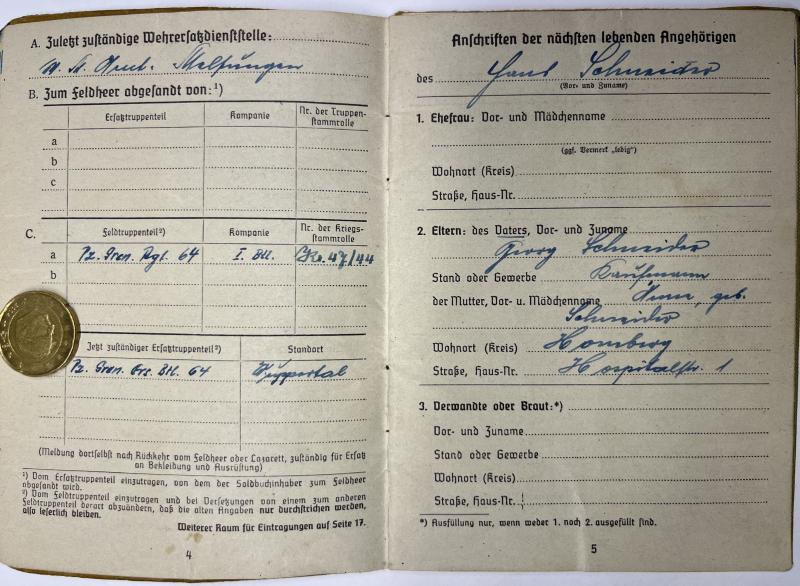 A. Zuletzt zuständige Wehrersatzdienststelle:
Melsungen
B. Zum Feldheer abgesandt von:¹)
Ersatztruppenteil
Kompanie
Nr. der Truppen-
stammrolle
a
b
c
C.
Feldtruppenteil²)
Kompanie
Nr. der Kriegs-
stammrolle
a
Pz. Gren. Rgt. 64
I. Btl.
47/44
b
Jetzt zuständiger Ersatztruppenteil²)
Standort
Pz. Gren. Ers. Btl. 64
Wuppertal
(Meldung dortselbst nach Rückkehr vom Feldheer oder Lazarett, zuständig für Ersatz
an Bekleidung und Ausrüstung)
¹) Vom Ersatztruppenteil einzutragen, von dem der Soldbuchinhaber zum Feldheer
abgesandt wird.
²) Vom Feldtruppenteil einzutragen und bei Versetzungen von einem zum anderen
Feldtruppenteil derart abzuändern, daß die alten Angaben nur durchstrichen werden,
also leserlich bleiben.
Weiterer Raum für Eintragungen auf Seite 17.
4
Anschriften der nächsten lebenden Angehörigen
des Hans Schneider
(Vor- und Zuname)
1. Ehefrau: Vor- und Mädchenname
(ggf. Vermerk „ledig“)
Wohnort (Kreis)
Straße, Haus-Nr.
2. Eltern: des Vaters, Vor- und Zuname
Georg Schneider
Stand oder Gewerbe Kaufmann
der Mutter, Vor- u. Mädchenname Anna, geb.
Schneider
Wohnort (Kreis) Homberg
Straße, Haus-Nr. Hospitalstr. 1
3. Verwandte oder Braut:*)
Vor- und Zuname
Stand oder Gewerbe
Wohnort (Kreis)
Straße, Haus-Nr.
*) Ausfüllung nur, wenn weder 1. noch 2. ausgefüllt sind.
5